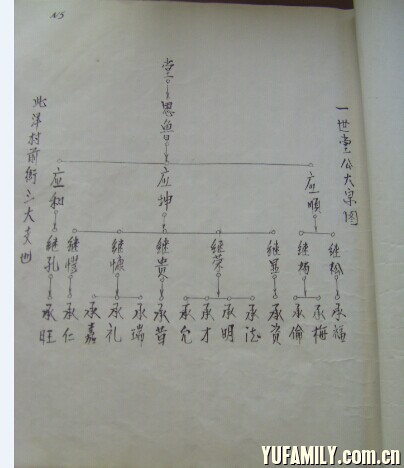 一世堂公大宗图
堂
思鲁
应顺
应坤
应和
继松
继显
继荣
继贵
继慷
继恺
继孔
承福
承梅
承倫
承资
承法
承明
承才
承允
承瑞
承礼
承嘉
承仁
承旺
北洋村前街三大支
YUFAMILY.com.cn